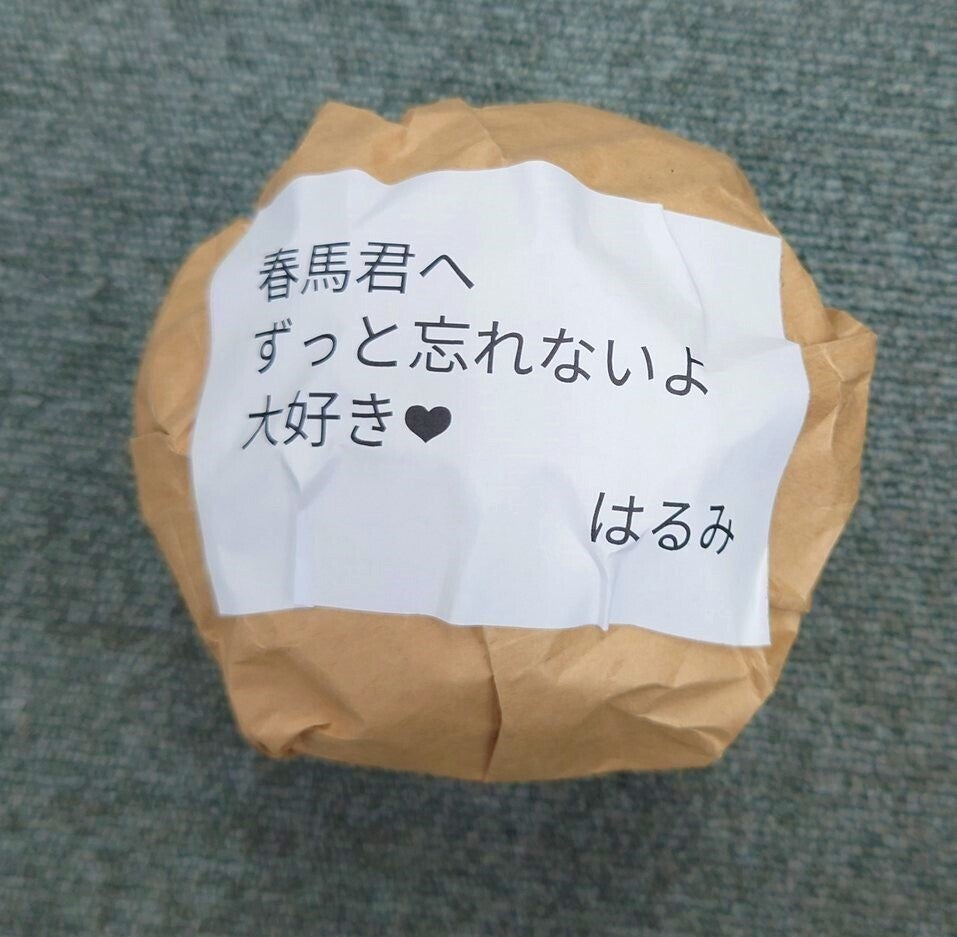 春馬君へ
ずっと忘れないよ
大好き♥
はるみ